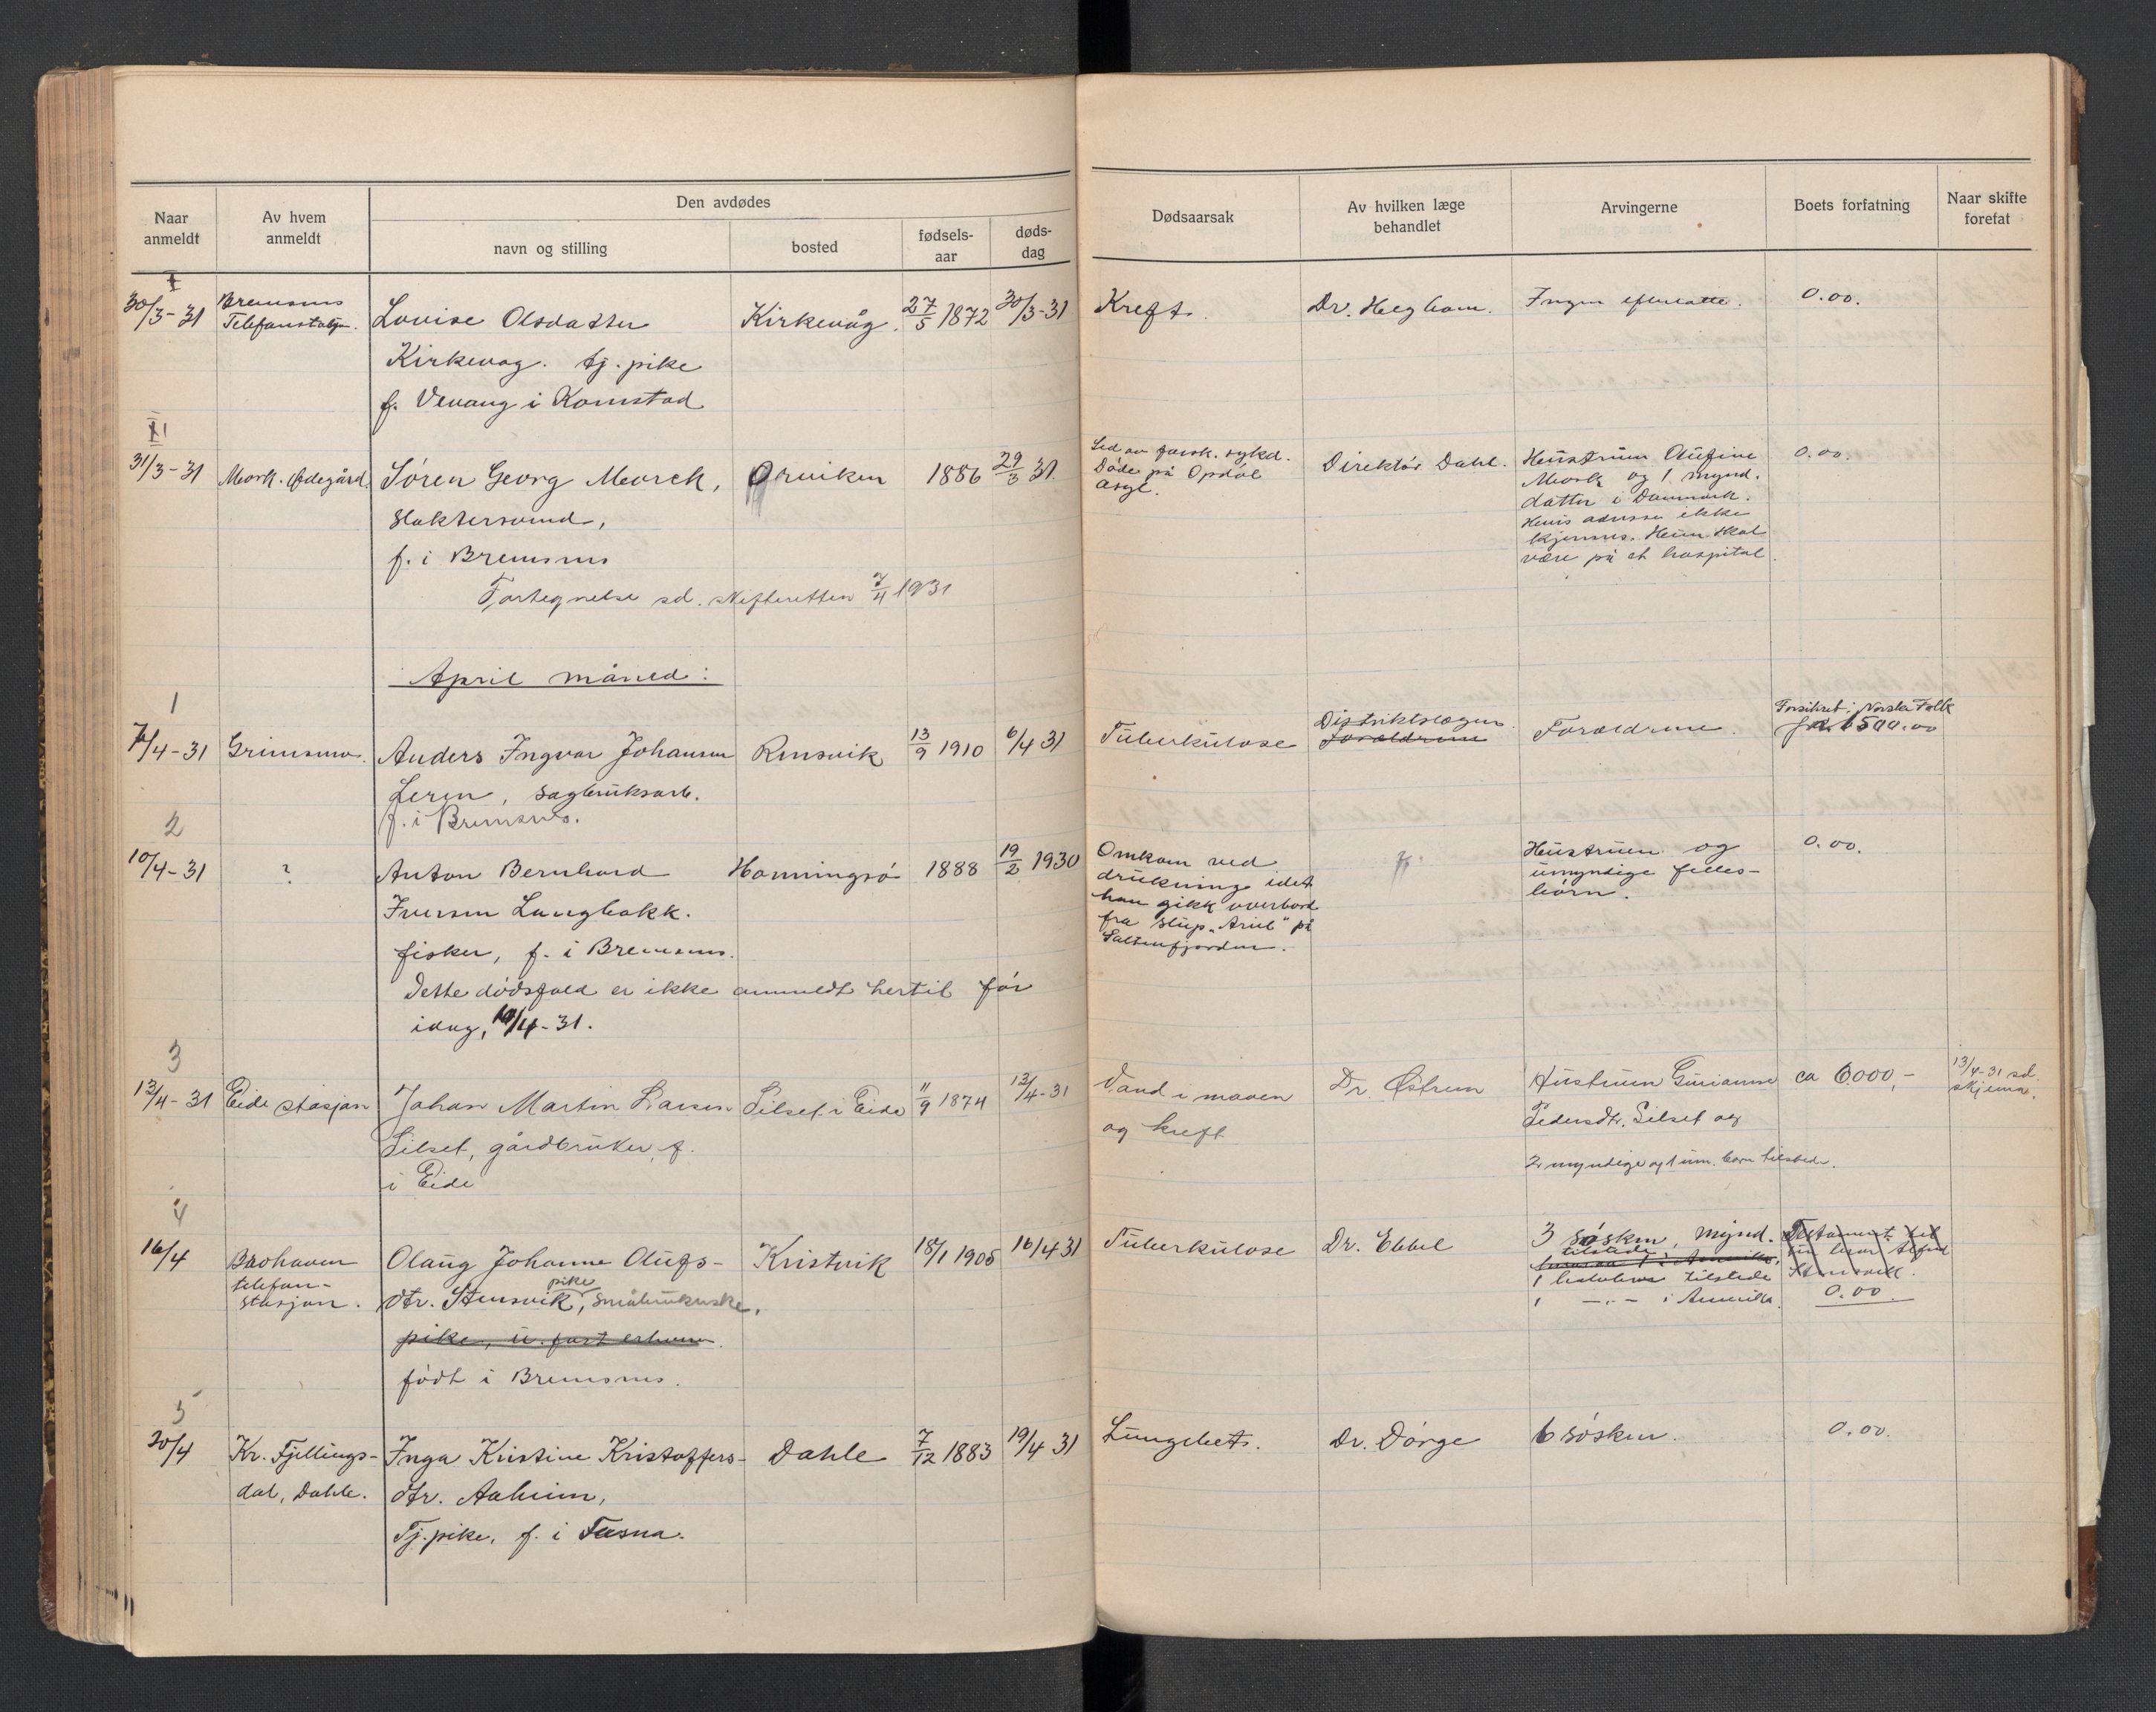 Naar anmeldt
Av hvem anmeldt
Den avdødes
navn og stilling
bosted
fødsels-aar
døds-dag
Dødsaarsak
Av hvilken læge behandlet
Arvingerne
Boets forfatning
Naar skifte foretat
30/3-31
Bremsnes
Telefonstasjon.
Lovise Olsdatter
Kirkevåg. tj. pike
f. Vevang i Kornstad
Kirkevåg.
27/5 1872
30/3-31
Kreft.
Dr. Heghom.
Ingen efterlatte.
0.00.
II
31/3-31
Mork. Ødegård.
Søren Georg Morck,
slaktersvend,
f. i Bremsnes
Fortegnelse sd. skifteretten 7/4 1931
Orviken
1886
29/3 31.
Led av forsk. sykd.
Døde på Opdøl
asyl.
Direktør Dahl.
Hustruen Olufine
Mork og 1 mynd.
datter i Danmark.
Hens adresse ikke
kjennes. Hun skal
være på et hospital.
0.00.
April måned:
1
7/4-31
Grimsmo.
Anders Ingvar Johansen
Leren, sagbruksarb.
f. i Bremsnes.
Rensvik
13/9 1910
6/4 31
Tuberkulose
Distriktslægen.
Foreldrene
Foreldrene.
Forsikret i Norske Folk
for 1500.00
2
10/4-31
?
Anton Bernhard
Iversen Langbakk.
fisker, f. i Bremsnes.
Dette dødsfald er ikke anmeldt hertil før
idag, 10/4-31.
Honningsø
1888
19/2 1930
Omkom ved
drukning idet
han gikk overbord
fra slup „Ariel" på
Saltenfjorden.
Hustruen og
umyndige felles-
børn.
0.00.
3
13/4-31
Eide stasjon
Johan Martin Larsen
Silset, gårdbruker, f.
i Eide
Silset i Eide
11/9 1874
12/4-31
Vand i maven
og kreft
Dr. Østrem
Hustruen Gurianne
Pedersdtr. Silset og
2 myndige og 1 um. barn tilstede.
ca 6000,-
13/4-31 sd.
skjema.
4
16/4
Brohaven
telefon-
stasjon.
Olaug Johanne Olufs-
dtr. Stensvik, pike småbrukerske,
pike, u. fast erhverv.
født i Bremsnes.
Kristvik
18/1 1905
16/4 31
Tuberkulose
Dr. Ebbel
3 søsken, mynd.
tilstede
1 halvbror tilstede
1 -"- i Amerika.
Testament til
0.00.
5
20/4
Kr. Fjellings-
dal, Dahle.
Inga Kristine Kristoffers-
dtr. Aaheim,
Tj. pike, f. i Tusna.
Dahle
7/12 1883
19/4 31
Lungebet.
Dr. Dørge
6 søsken.
0.00.